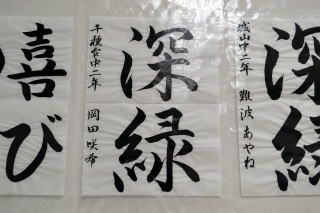 深緑
城山中二年 難波あやね
深緑
千種台中二年 岡田咲希
喜び